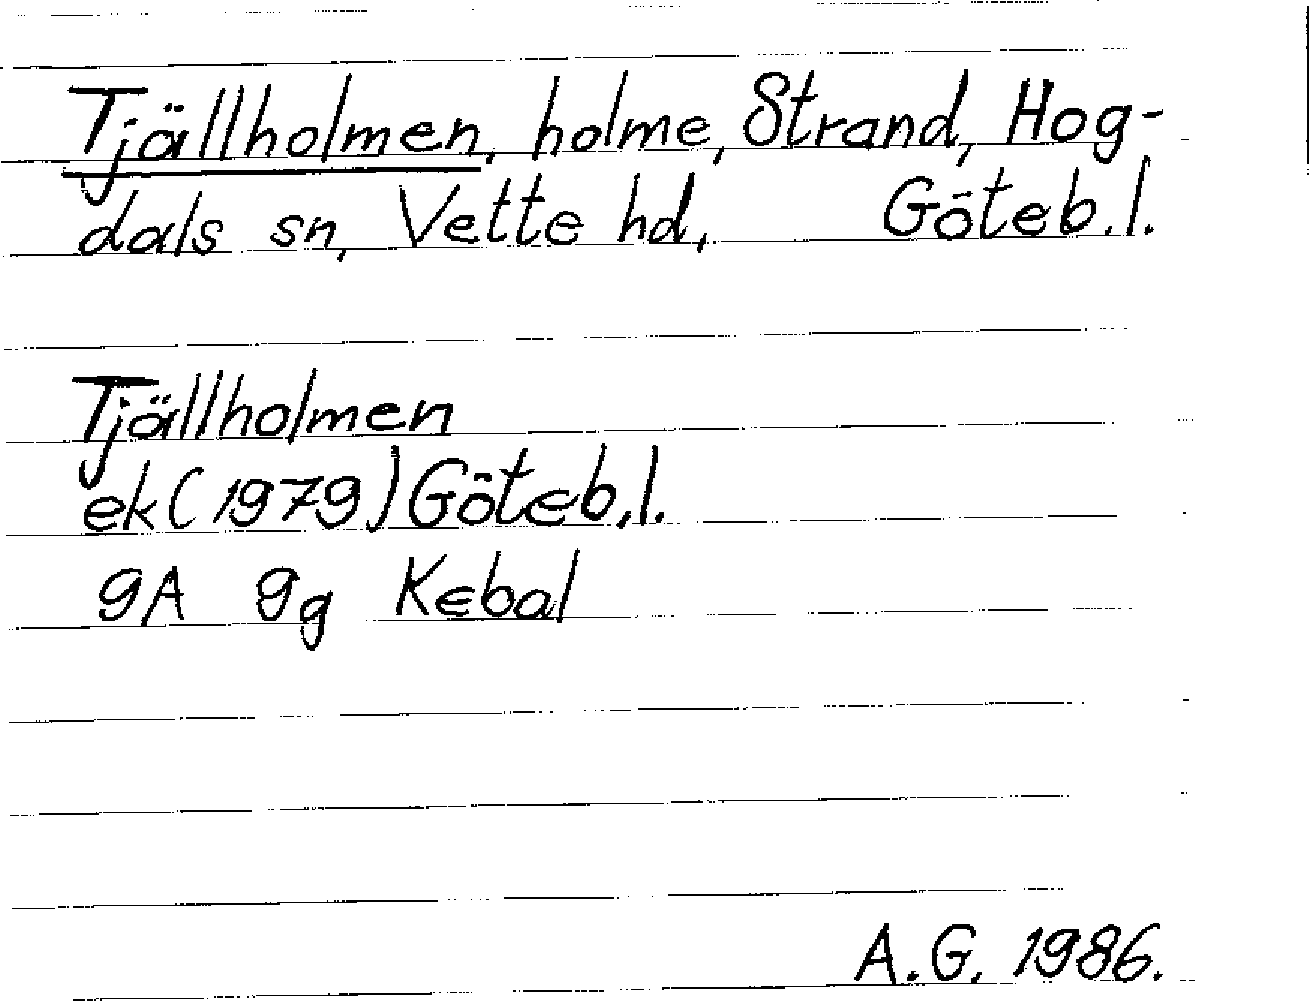 Tjällholmen, holme, Strand, Hog-
dals sn, Vette hd, Göteb.l.
Tjällholmen
ek (1979) Göteb.l.
9A 9g Kebal
A.G. 1986.